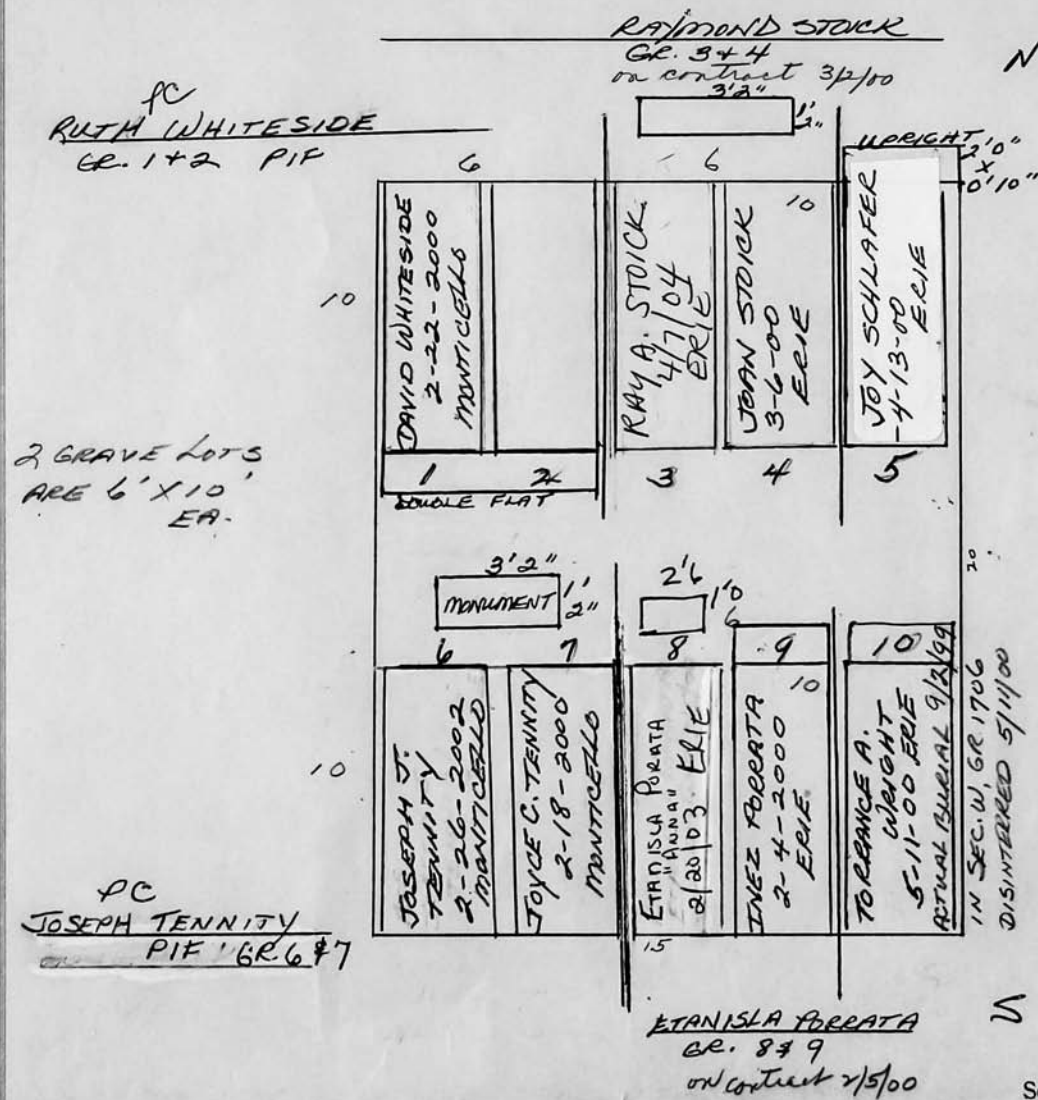 RAYMOND STOICK
GR. 3 & 4
on contract 3/2/00
N
PC
RUTH WHITESIDE
GR. 1 + 2 PIF
3'2"
1'
2"
UPRIGHT
2'0"
X
0'10"
6
6
10
10
DAVID WHITESIDE
2-22-2000
MONTICELLO
RAY A. STOICK
4/7/04
ERIE
JOAN STOICK
3-6-00
ERIE
JOY SCHLAFER
-4-13-00
ERIE
2 GRAVE LOTS
ARE 6' X 10'
EA.
1 2 3 4 5
DOUBLE FLAT
3'2"
MONUMENT
1'
2"
2'6
1'0
6
20
6 7 8 9 10
10
10
JOSEPH J.
TENNITY
2-26-2002
MONTICELLO
JOYCE C. TENNITY
2-18-2000
MONTICELLO
ETANISLA PORATA
"ANNA"
2/20/03 ERIE
INEZ PORRATA
2-4-2000
ERIE
TORRANCE A.
WRIGHT
5-11-00 ERIE
ACTUAL BURIAL 9/2/99
IN SEC. W, GR. 1706
DISINTERRED 5/11/00
PC
JOSEPH TENNITY
PIF GR. 6 & 7
15
ETANISLA PORRATA
GR. 8 & 9
on contract 2/5/00
S